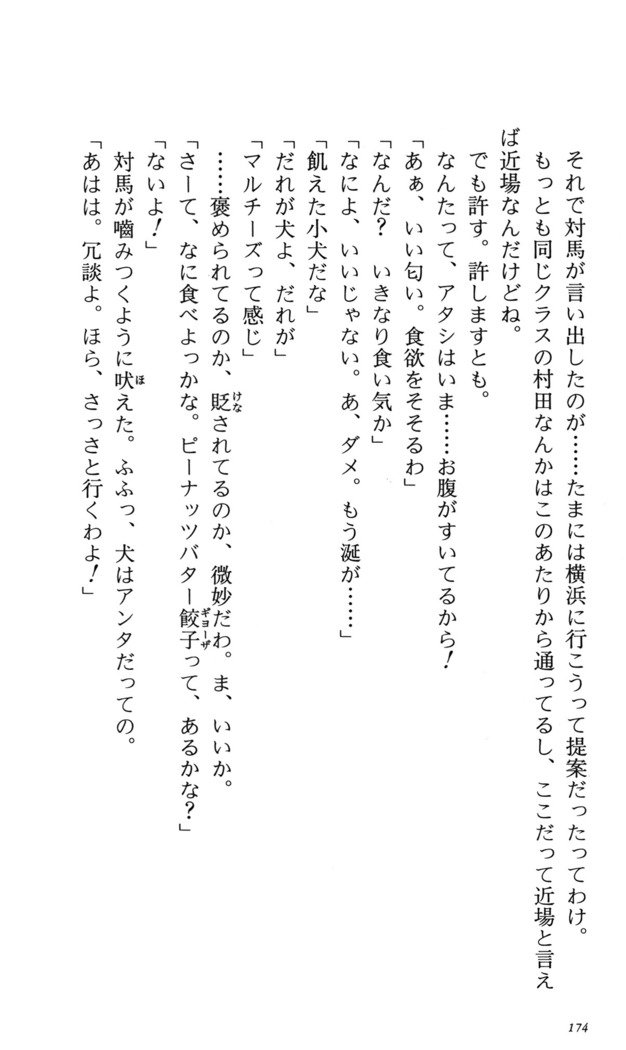 それで対馬が言い出したのが……たまには横浜に行こうって提案だったってわけ。
もっとも同じクラスの村田なんかはこのあたりから通ってるし、ここだって近場と言え
ば近場なんだけどね。
でも許す。許しますとも。
なんたって、アタシはいま……お腹がすいてるから！
「あぁ、いい匂い。食欲をそそるわ」
「なんだ？　いきなり食い気か」
「なによ、いいじゃない。あ、ダメ。もう涎が……」
「飢えた小犬だな」
「だれが犬よ、だれが」
「マルチーズって感じ」
……褒められてるのか、貶されてるのか、微妙だわ。ま、いいか。
けな
「さーて、なに食べよっかな。ピーナッツバター餃子って、あるかな？」
ギョーザ
「ないよ！」
対馬が嚙みつくように吠えた。ふふっ、犬はアンタだっての。
ほ
「あはは。冗談よ。ほら、さっさと行くわよ！」
174